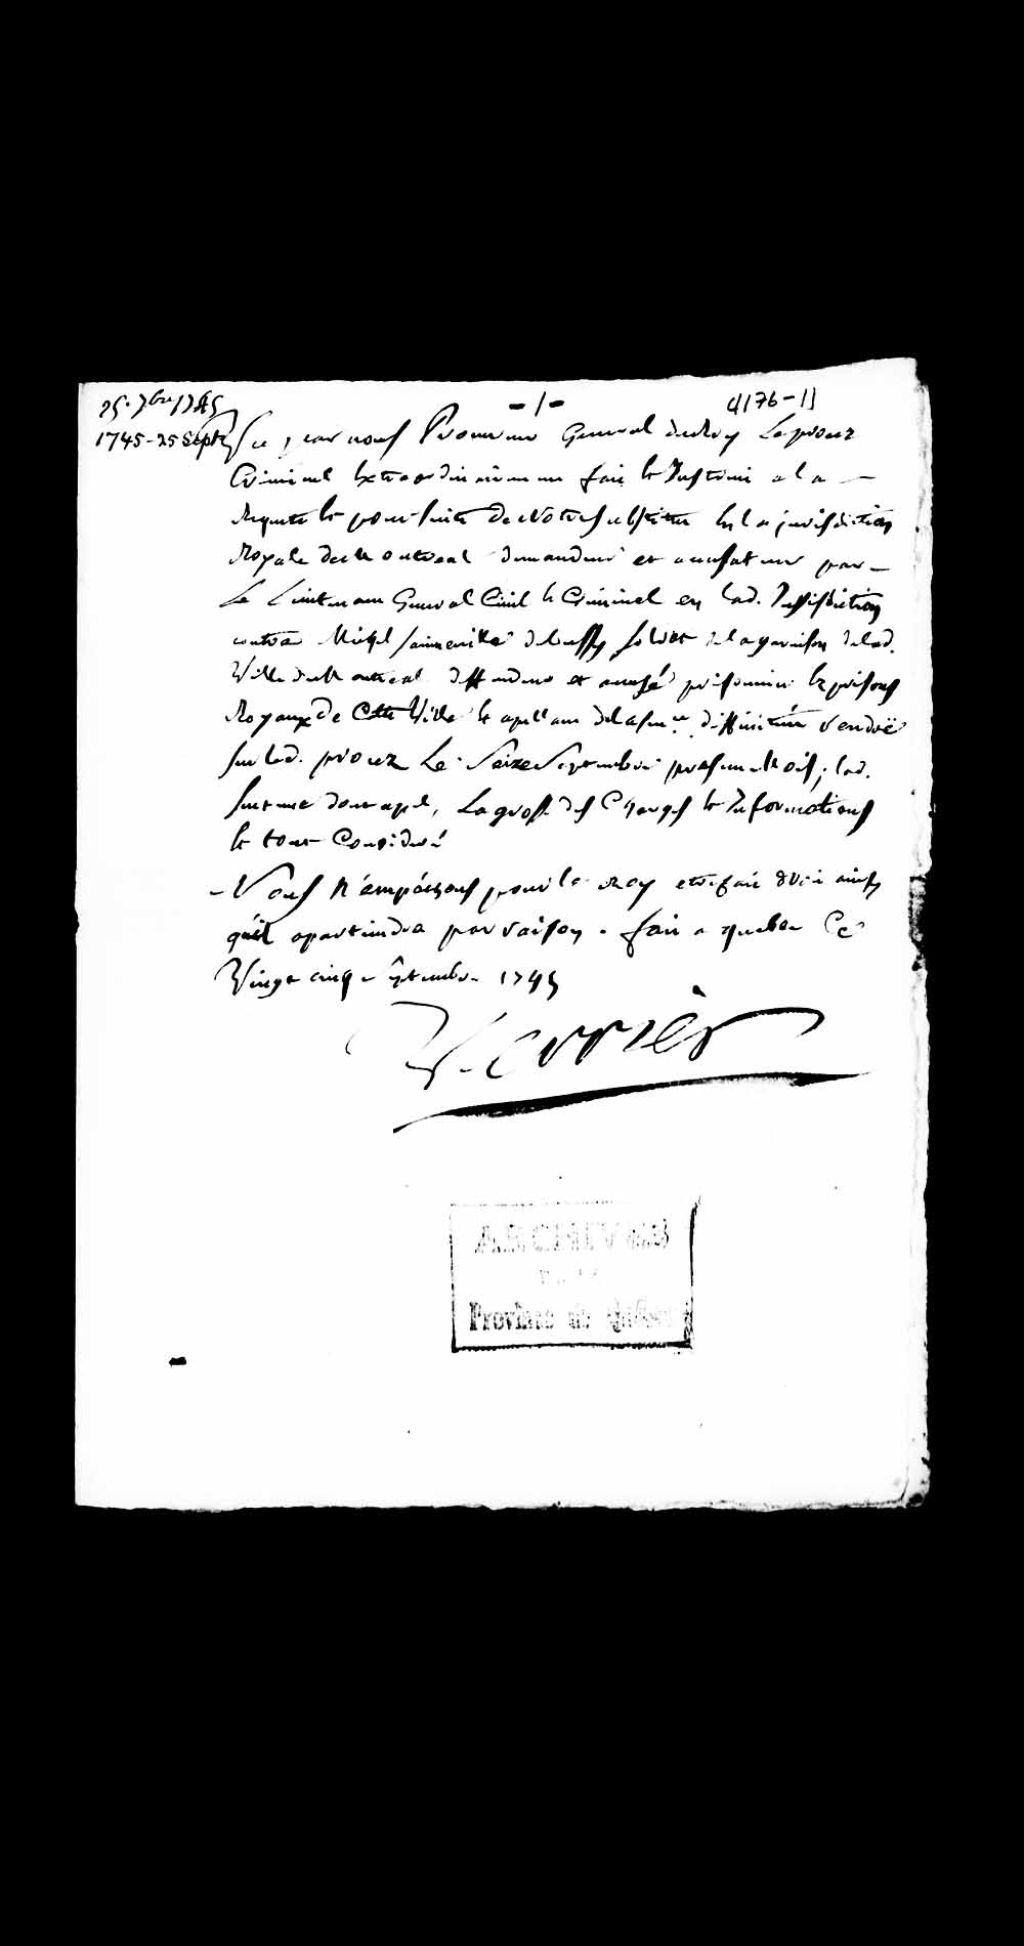 25. 7bre 1745
-1-
4176-11
1745-25 Sept
Veu par nous Procureur General du Roy Le procez
Criminel Extraordinairement fait et Instruit a la
Requeste et poursuitte de Notre substitut en la jurisdiction
Royale de Montreal demandeur et accusateur par
Le Lieutenant General Civil et Criminel en lad. Jurisdiction
contre Michel soldat de la garnison de lad.
Ville de Montreal deffendeur et accusé prisonnier ez prisons
Royaux De Cette Ville et apellant de la snce diffinitive rendüe
sur led. procez Le Seize Septembre present Mois; lad.
sentence dont apel, La grosse des Charges et Informations
le tout Consideré
Nous N'empéchons pour le Roy etre fait droit ainsy
quil apartiendra par raison. fait a Quebec Ce
Vingt cinq septembre 1745
Verrier
ARCHIVES
Province de Québec